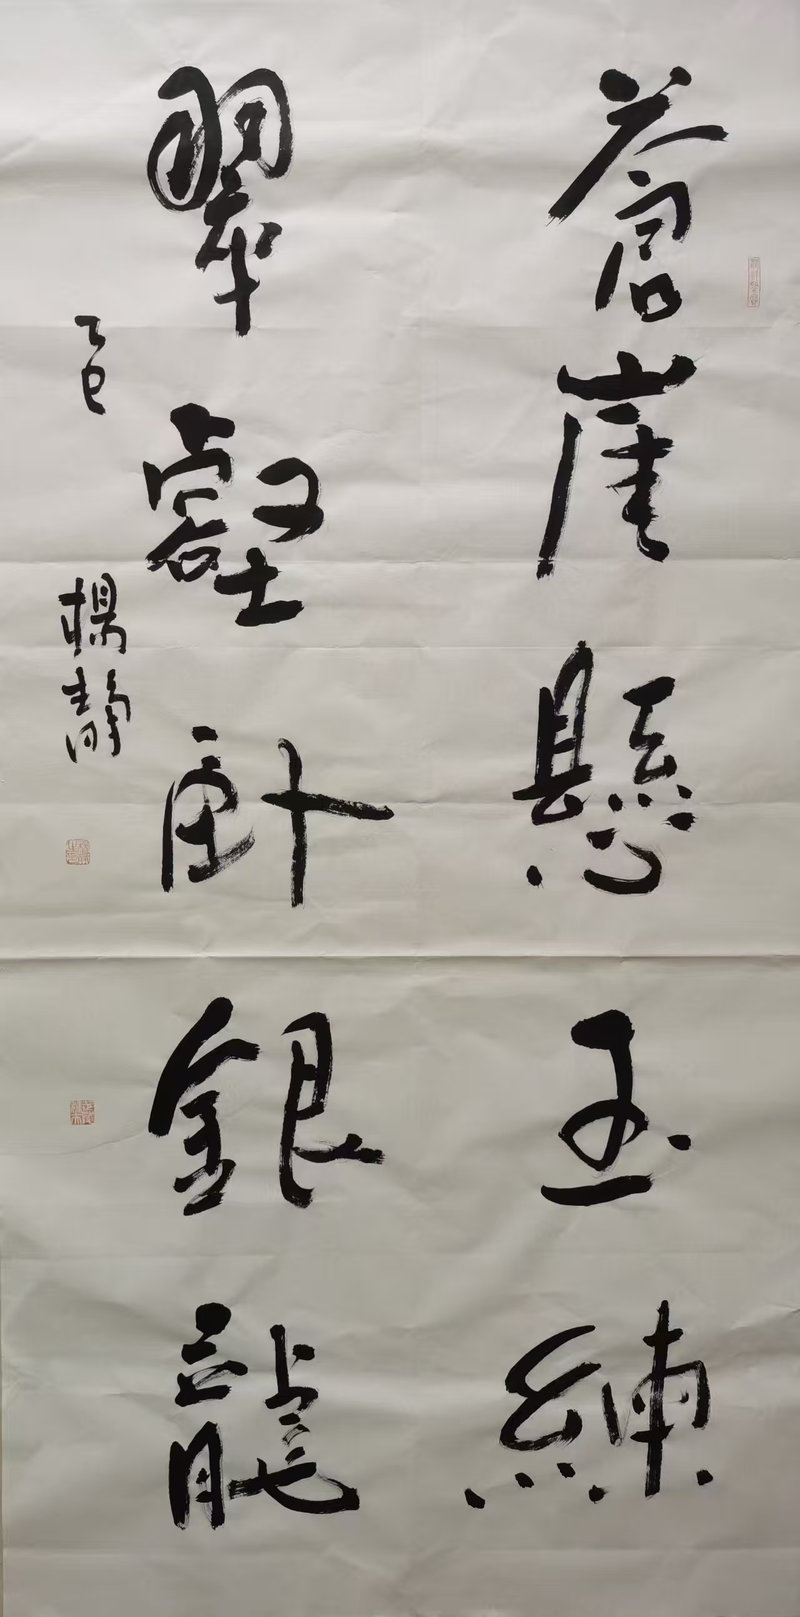 蒼崖懸玉練
翠壑臥銀龍
乙巳
楊靜